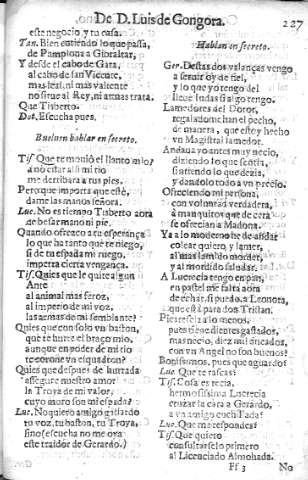 De D. Luis de Gongora. 227
este negocio, y tu casa.
Tan. Bien entiendo lo que passa,
de Pamplona a Gibraltar,
Y desde el cabo de Gata,
al cabo de san Vicente,
mas leal, ni mas valiente
no sirue al Rey, ni armas trata.
Que Tisberto.
Dot. Escucha pues.
Bueluen hablar en secreto.
Tis. Que te monio el llanto mio?
a no estar alli mi tio
me derribara a tus pies.
Pero que importa que esté,
dame las manos señora.
Luc. No es tiempo Tisberto aora
de besar mano ni pie.
Quando ofrezco a tu esperança
lo que ha tanto que te niego,
si de tu espada mi ruego.
impetra cierta vengança.
Tis. Quies que le quite a gun
Ante
al animal mas feroz,
al imperio de mi voz.
las armas de mi semblante?
Quies que con solo vn baston,
que te hurte el braço mio,
aunque en poder de mi tio
te corone vn esquadron?
Quies que despues de hurtada
assegure nuestro amor
la Troya de mi valor,
cuyo muro son mi espada?
Luc. No quiero amigo gastado
tu voz, tu baston, tu Troya,
sino (escucha no me oya
este traidor de Gerardo.)
Hablan en secreto.
Ger. Destas dos valanças vengo
a seruir oy de fiel,
y lo que yo tengo del
lleue Iudas si algo tengo.
Lamedores del Doror,
regaladome han el pecho,
de manera, que estoy hecho
vn Magistral lamedor.
Andaua yo antes muy necio,
diziendo lo que sentia,
sintiendo lo que dezia,
y dandolo todo a vn precio.
Ofreciendo mi persona,
con voluntad verdadera,
à manquitos que de cera
se ofrecian a Madona.
Ya a lo moderno he de andar
colear quiero, y lamer,
al mas lamido morder,
y al mordido saludar.
A Lucrecia tengo en pan,
en pastel me falta aora
de echar, si puedo, a Leonora,
que està para don Tristan.
Pierteseli a lo menos,
pues tiene dientes gastados,
mas necio, diez mil ancados,
con vn Angel no son buenos?
Bonissimos, pues que aguarda?
Luc. Que te rafas?
Tis. Cosa es recia,
hermosissima Lucrecia
cruzar la cara a Gerardo,
a vn amigo cuch Fada?
Luc. Que me respondes?
Tis. Que quiero
consultarselo primero
al Licenciado Almohada.
Ff 3 No